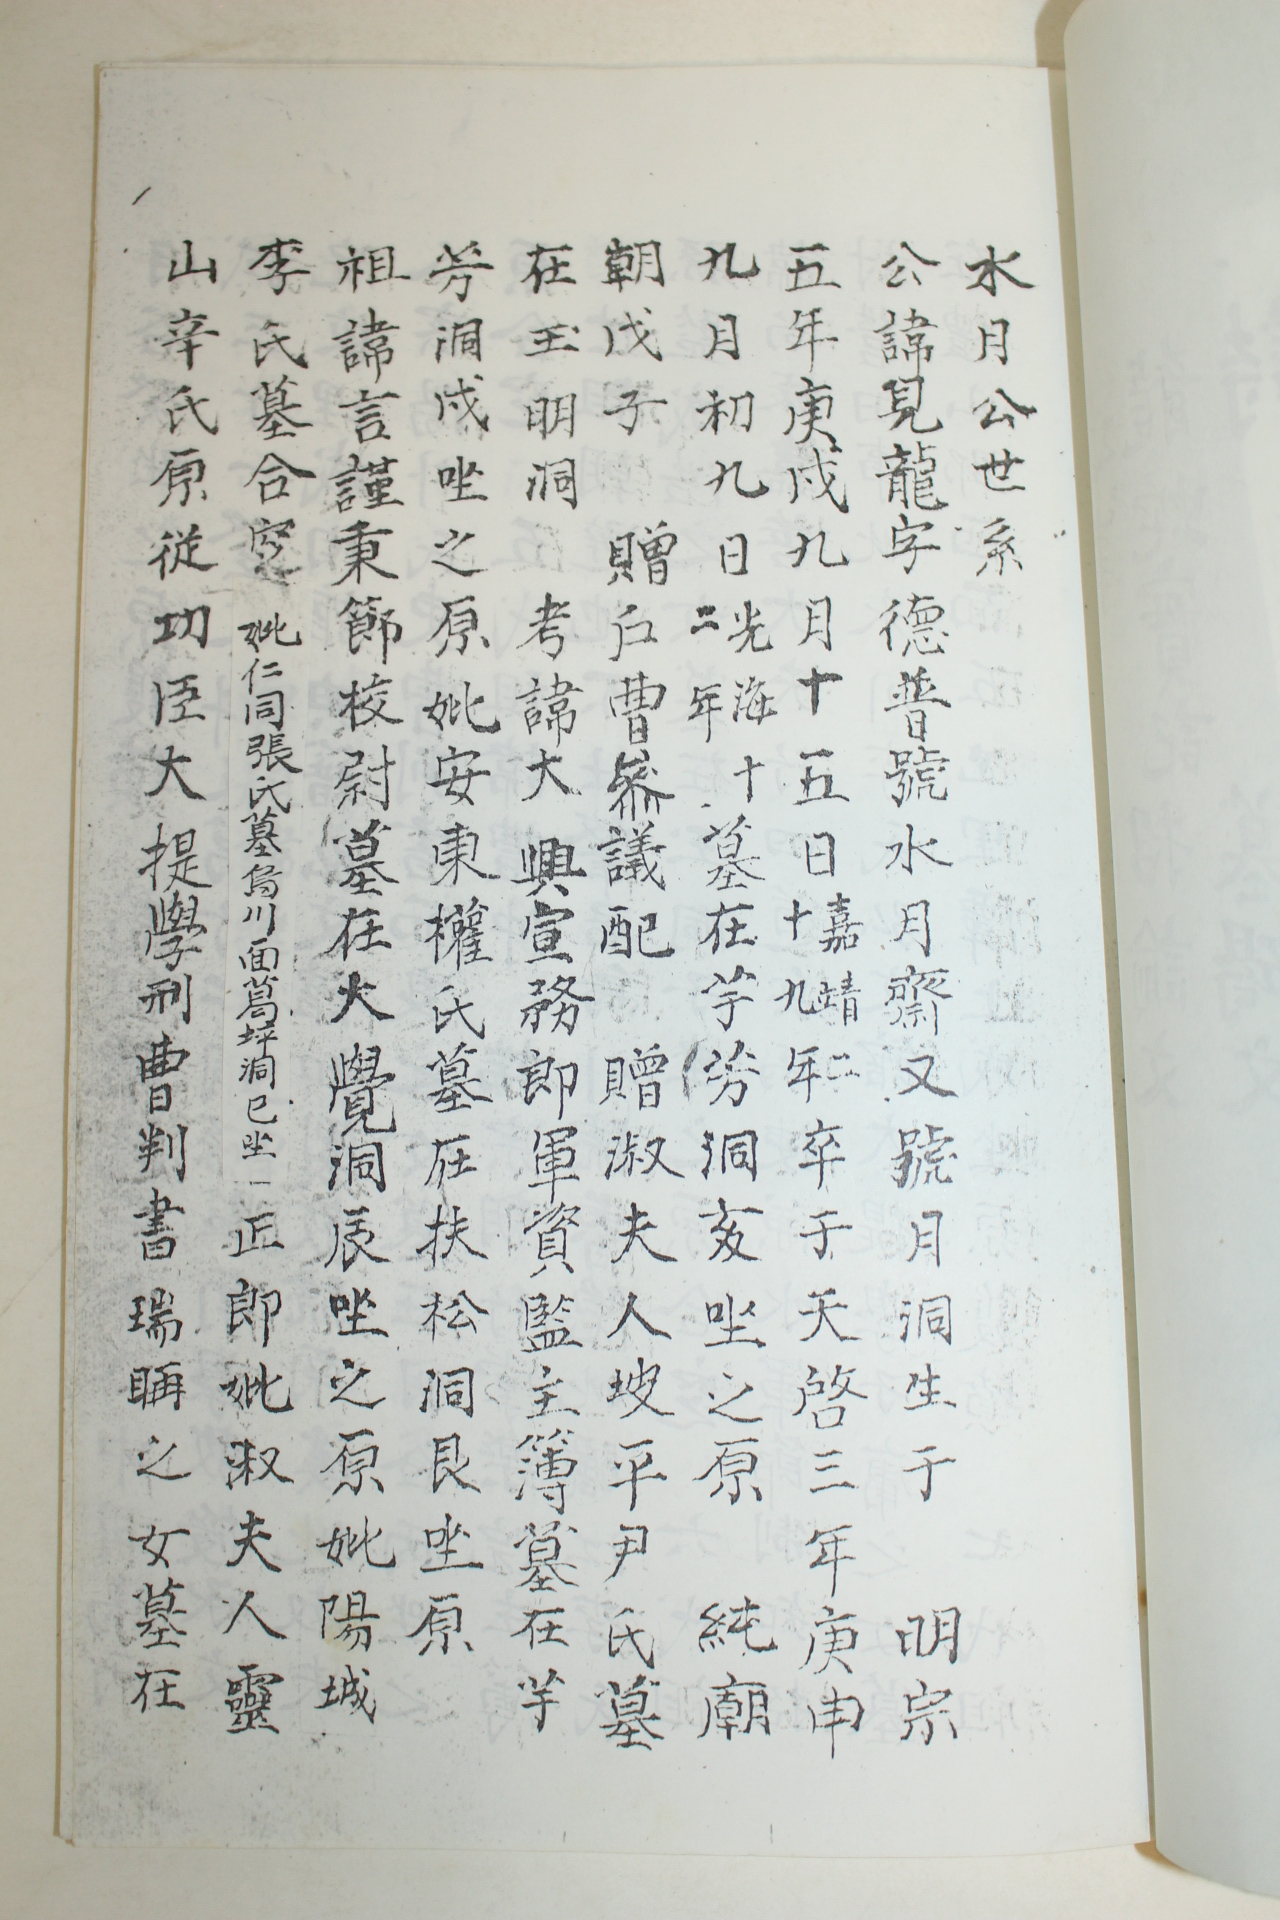 水月公世系
公諱見龍字德普號水月齋又號月洞生于 明宗
五年庚戌九月十五日嘉靖二十九年卒于天啓三年庚申
九月初九日光海十二年墓在芋芳洞亥坐之原 純廟
朝戊子 贈戶曹參議配 贈淑夫人坡平尹氏墓
在玉明洞 考諱大興宣務郎軍資監主簿墓在芋
芳洞戌坐之原妣安東權氏墓在扶松洞艮坐原
祖諱言謹秉節校尉墓在大覺洞辰坐之原妣陽城
李氏墓合窆 妣仁同張氏墓烏川面葛坪洞巳坐 正郎妣淑夫人靈
山辛氏原從功臣大提學刑曹判書瑞聃之女墓在